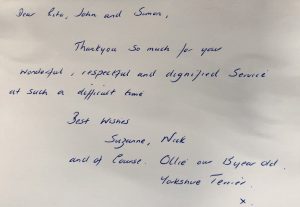 Dear Rita, John and Simon,
Thankyou so much for your
wonderful, respectful and dignified service
at such a difficult time
Best Wishes
Suzanne, Nick
and of Course. Ollie our 13 year old.
Yorkshire Terrier.
x.